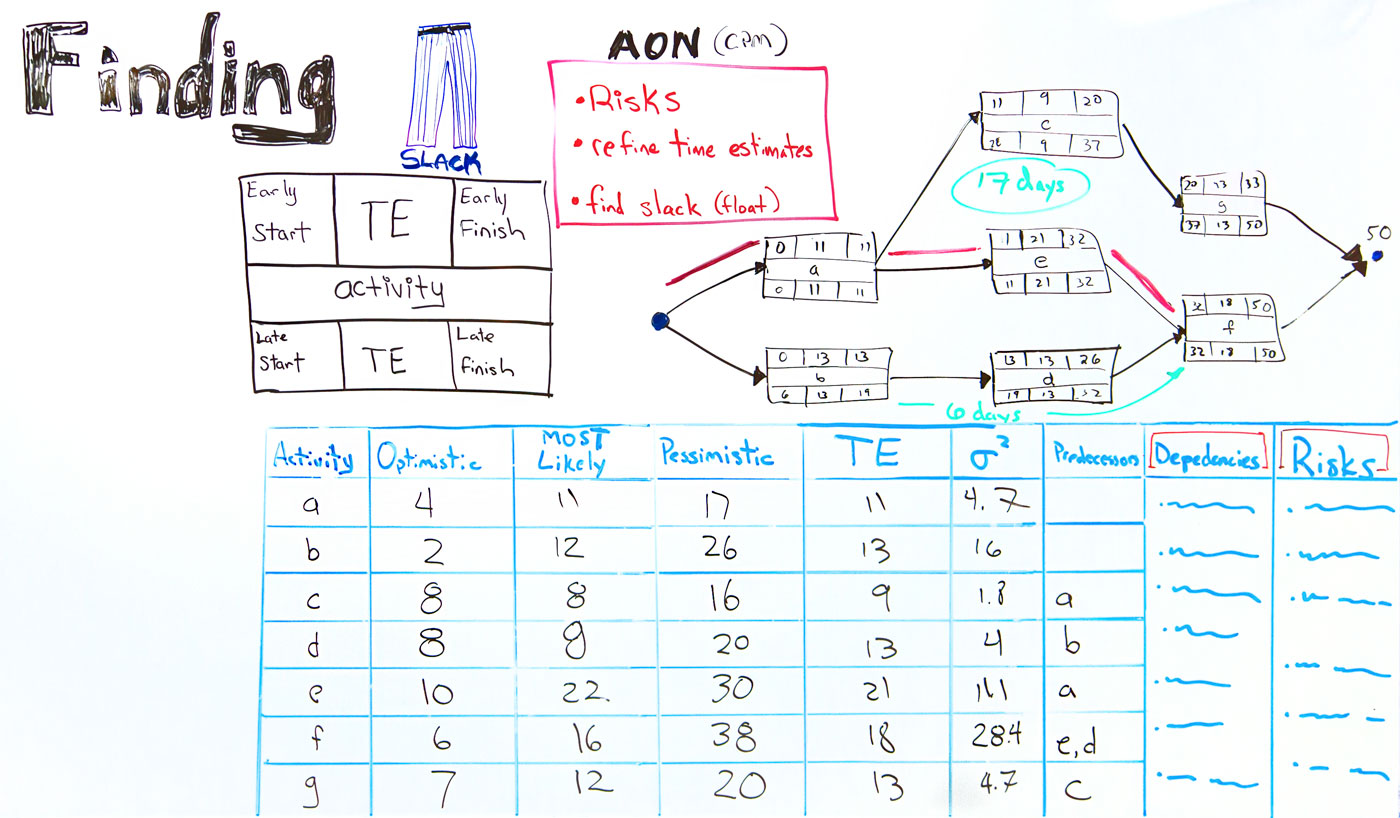 Finding
SLACK
AON (CPM)
• Risks
• refine time estimates
• find slack (float)
Early Start TE Early Finish
activity
Late Start TE Late Finish
11 9 20
c
28 9 37
17 days
20 13 33
g
37 13 50
50
0 11 11
a
0 11 11
11 21 32
e
11 21 32
32 18 50
f
32 18 50
0 13 13
b
6 13 19
13 13 26
d
19 13 32
6 days
Activity Optimistic MOST Likely Pessimistic TE σ² Predecessors Depedencies Risks
a 4 11 17 11 4.7
b 2 12 26 13 16
c 8 8 16 9 1.8 a
d 8 20 13 4 b
e 10 22. 30 21 a
f 6 16 38 18 28.4 e,d
g 7 12 20 13 4.7 c